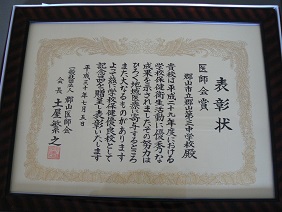 表彰状
医師会賞
郡山市立郡山第三中学校殿
貴校は平成二十九年度における
学校保健衛生活動に優秀な
成果を示されましたその努力は
ひろく地域医療に寄与するところ
また大なるものがあります
よって茲に学校保健優良校として
記念品を贈呈し表彰いたします
平成三十年七月五日
一般社団法人 郡山医師会
会長 土屋繁之